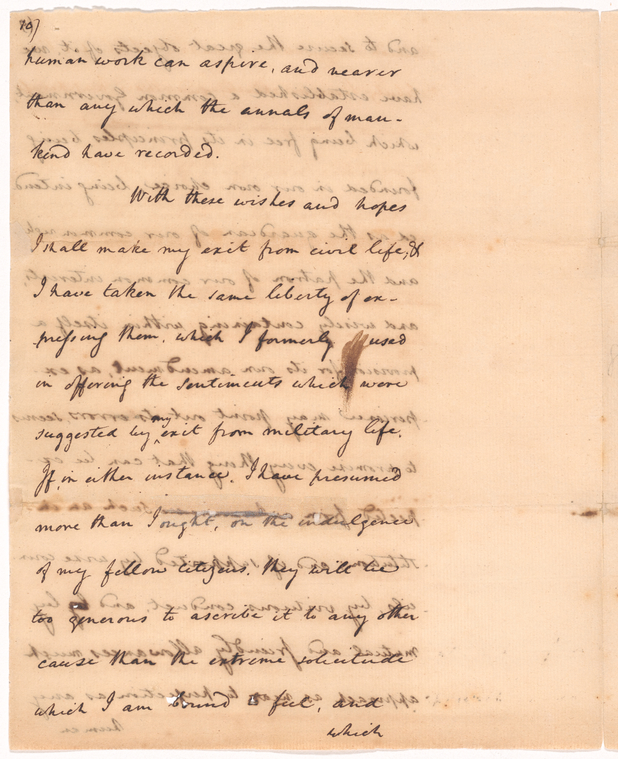 19)
human work can aspire, and nearer
than any which the annals of man-
kind have recorded.
With these wishes and hopes
I shall make my exit from civil life, &
I have taken the same liberty of ex-
pressing them, which I formerly used
in offering the sentiments which were
suggested by my exit from military life.
If, in either instance, I have presumed
more than I ought, on the indulgence
of my fellow citizens, they will be
too generous to ascribe it to any other
cause than the extreme solicitude
which I am bound to feel, and
which